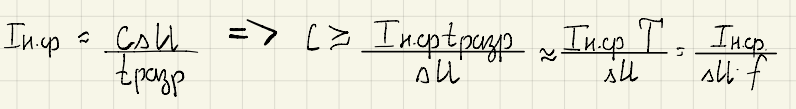 Iн.ср ≈ CΔU / tразр => C ≥ Iн.ср tразр / ΔU ≈ Iн.ср T / ΔU = Iн.ср / ΔU · f